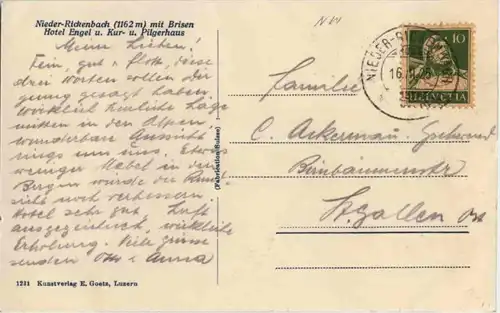 Nieder-Rickenbach (1162 m) mit Brisen
Hotel Engel u. Kur- u. Pilgerhaus
NW
Meine Lieben!
Fein, gut & flott, diese
drei Worten sollen
genug gesagt haben.
Wirklich herrliche Lage
mitten in den Alpen,
wunderbare Aussicht
rings um uns. Etwas
weniger Nebel in den
Bergen würde die
sicht noch verbessern.
Hotel sehr gut, Luft
ausgezeichnet, wirkliche
Erholung. Viele Grüsse
senden Otto & Anna
(Fabrication Suisse)
1231 Kunstverlag E. Goetz, Luzern
NIEDER-RI
16
10
HELVETIA
Familie
C. Ackermann-Gschwend
Birnbäumenstr
St. Gallen Ost